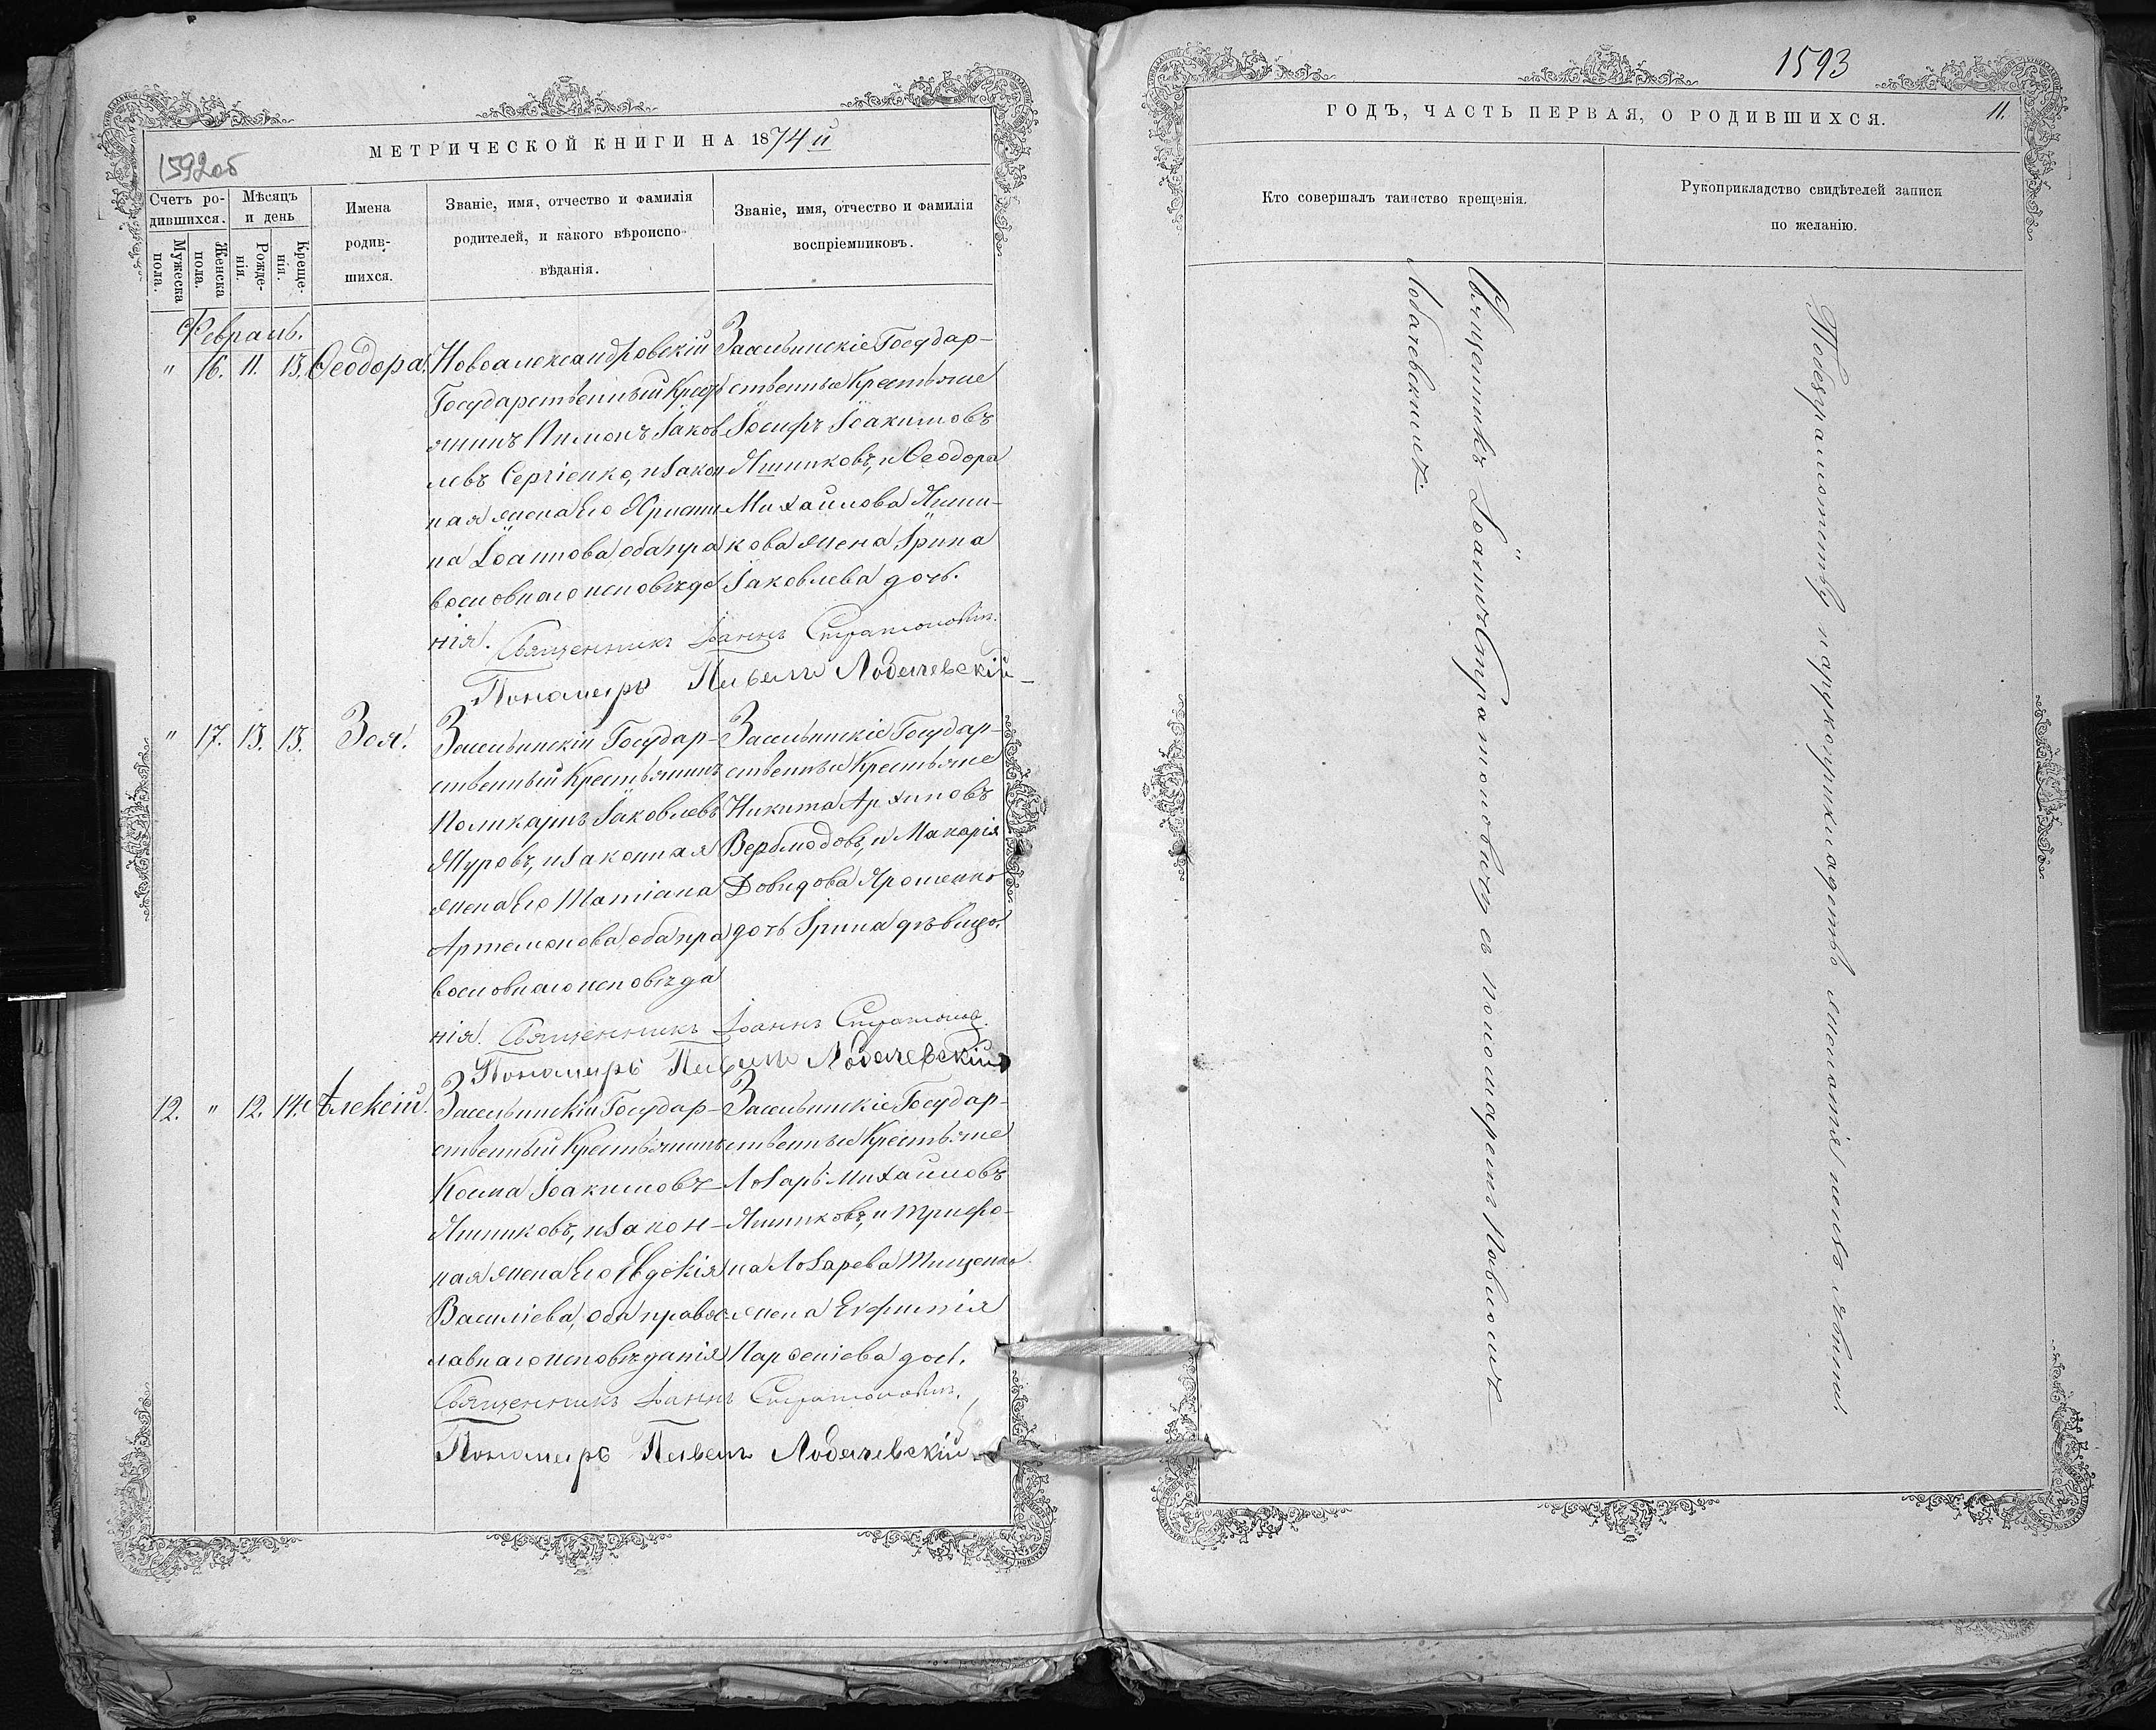 1592об
МЕТРИЧЕСКОЙ КНИГИ НА 1874й
Счетъ ро-
дившихся.
Мужеска
пола.
Женска
пола.
Мѣсяцъ
и день
Рожде-
нія.
Креще-
нія.
Имена
родив-
шихся.
Званіе, имя, отчество и фамилія
родителей, и какого вѣроиспо-
вѣданія.
Званіе, имя, отчество и фамилія
воспріемниковъ.
Февраль.
" 16. 11. 13. Ѳеодора.
Новоалександровскій
Государственный Крест
янинъ Пимонъ Іаков
левъ Сергіенко, и закон
ная жена его Христи
на Іоаннова оба пра
вославнаго исповѣда
нія.
Засельинскіе Государ-
ственные Крестьяне
Іосифъ Іоакимовъ
Яшниковъ, и Ѳеодора
Михайлова Яшни-
кова жена Ирина
Іаковлева дочь.
Священникъ Іоаннъ Стратоновичъ.
Пономарь Павелъ Лобачевскій
" 17. 13. 13. Зоя.
Засельинскій Государ-
ственный Крестьянинъ
Поликарпъ Іаковлевъ
Журовъ, и законная
жена его Татіана
Артемонова оба пра
вославнаго исповѣда
нія.
Засельинскіе Государ-
ственные Крестьяне
Никита Архиповъ
Верблюдовъ, и Макарія
Довидова Ярошенко
дочь Ирина дѣвица.
Священникъ Іоаннъ Стратонов.
Пономарь Павелъ Лобачевскій
12. " 12. 14. Алексій.
Засельинскій Государ-
ственный Крестьянинъ
Косма Іоакимовъ
Яшниковъ, и закон-
ная жена его Евдокія
Василіева, оба правос-
лавнаго исповѣданія
Засельинскіе Государ-
ственные Крестьяне
Лазарь Михайловъ
Яшниковъ, и Трифо-
на Лазарева Тищенко
жена Евфимія
Парѳеніева доч.
Священникъ Іоаннъ Стратоновичъ.
Пономарь Павелъ Лобачевскій
1593
11.
ГОДЪ, ЧАСТЬ ПЕРВАЯ, О РОДИВШИХСЯ.
Кто совершалъ таинство крещенія.
Рукоприкладство свидѣтелей записи
по желанію.
Священникъ Іоаннъ Стратоновичъ съ пономаремъ Павломъ
Лобачевскимъ.
По безграмотству и рукоприкладствъ желанія